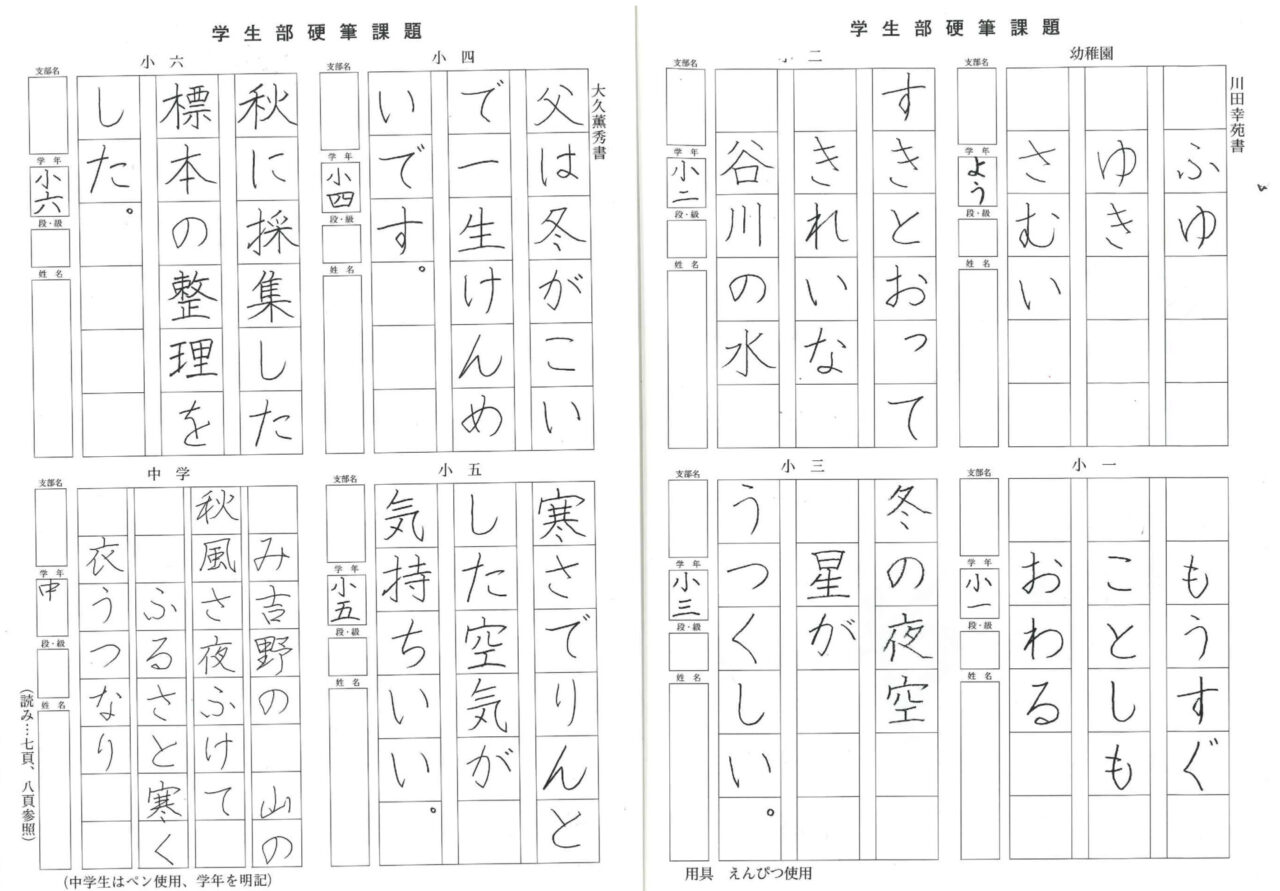 学生部硬筆課題
幼稚園
川田幸苑書
ふゆ
ゆき
さむい
支部名
学年
よう
段・級
姓名
小一
もうすぐ
ことしも
おわる
支部名
学年
小一
段・級
姓名
小二
すきとおって
きれいな
谷川の水
支部名
学年
小二
段・級
姓名
小三
冬の夜空
星が
うつくしい。
支部名
学年
小三
段・級
姓名
用具 えんぴつ使用
学生部硬筆課題
小四
大久薫秀書
父は冬がこい
で一生けんめ
いです。
支部名
学年
小四
段・級
姓名
小五
寒さでりんと
した空気が
気持ちいい。
支部名
学年
小五
段・級
姓名
小六
秋に採集した
標本の整理を
した。
支部名
学年
小六
段・級
姓名
中学
み吉野の 山の
秋風さ夜ふけて
ふるさと寒く
衣うつなり
支部名
学年
中
段・級
姓名
(読み…七頁、八頁参照)
(中学生はペン使用、学年を明記)